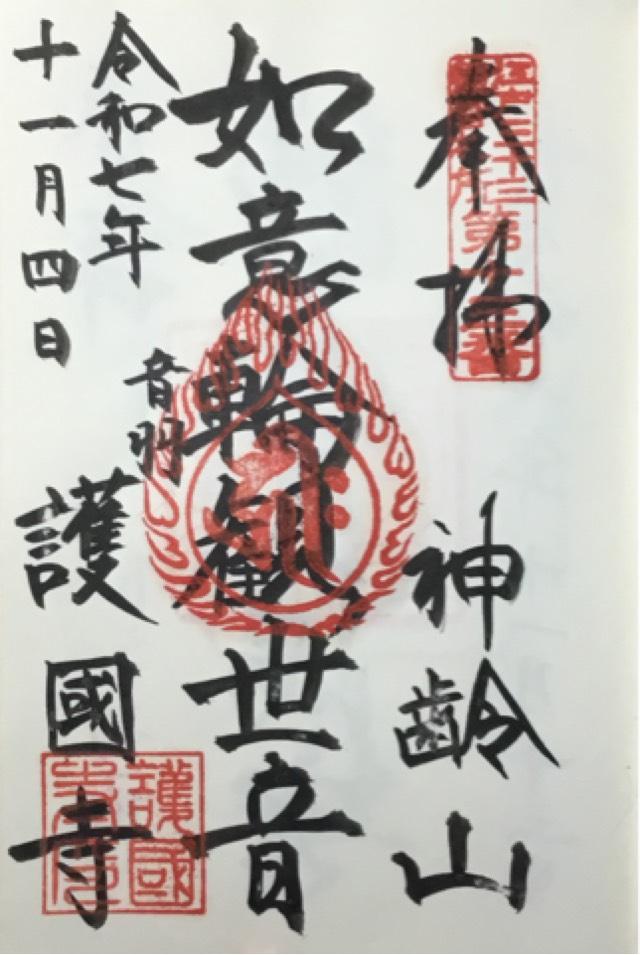 奉拝
神齢山
如意輪観世音
令和七年
十一月四日
音羽
護國寺